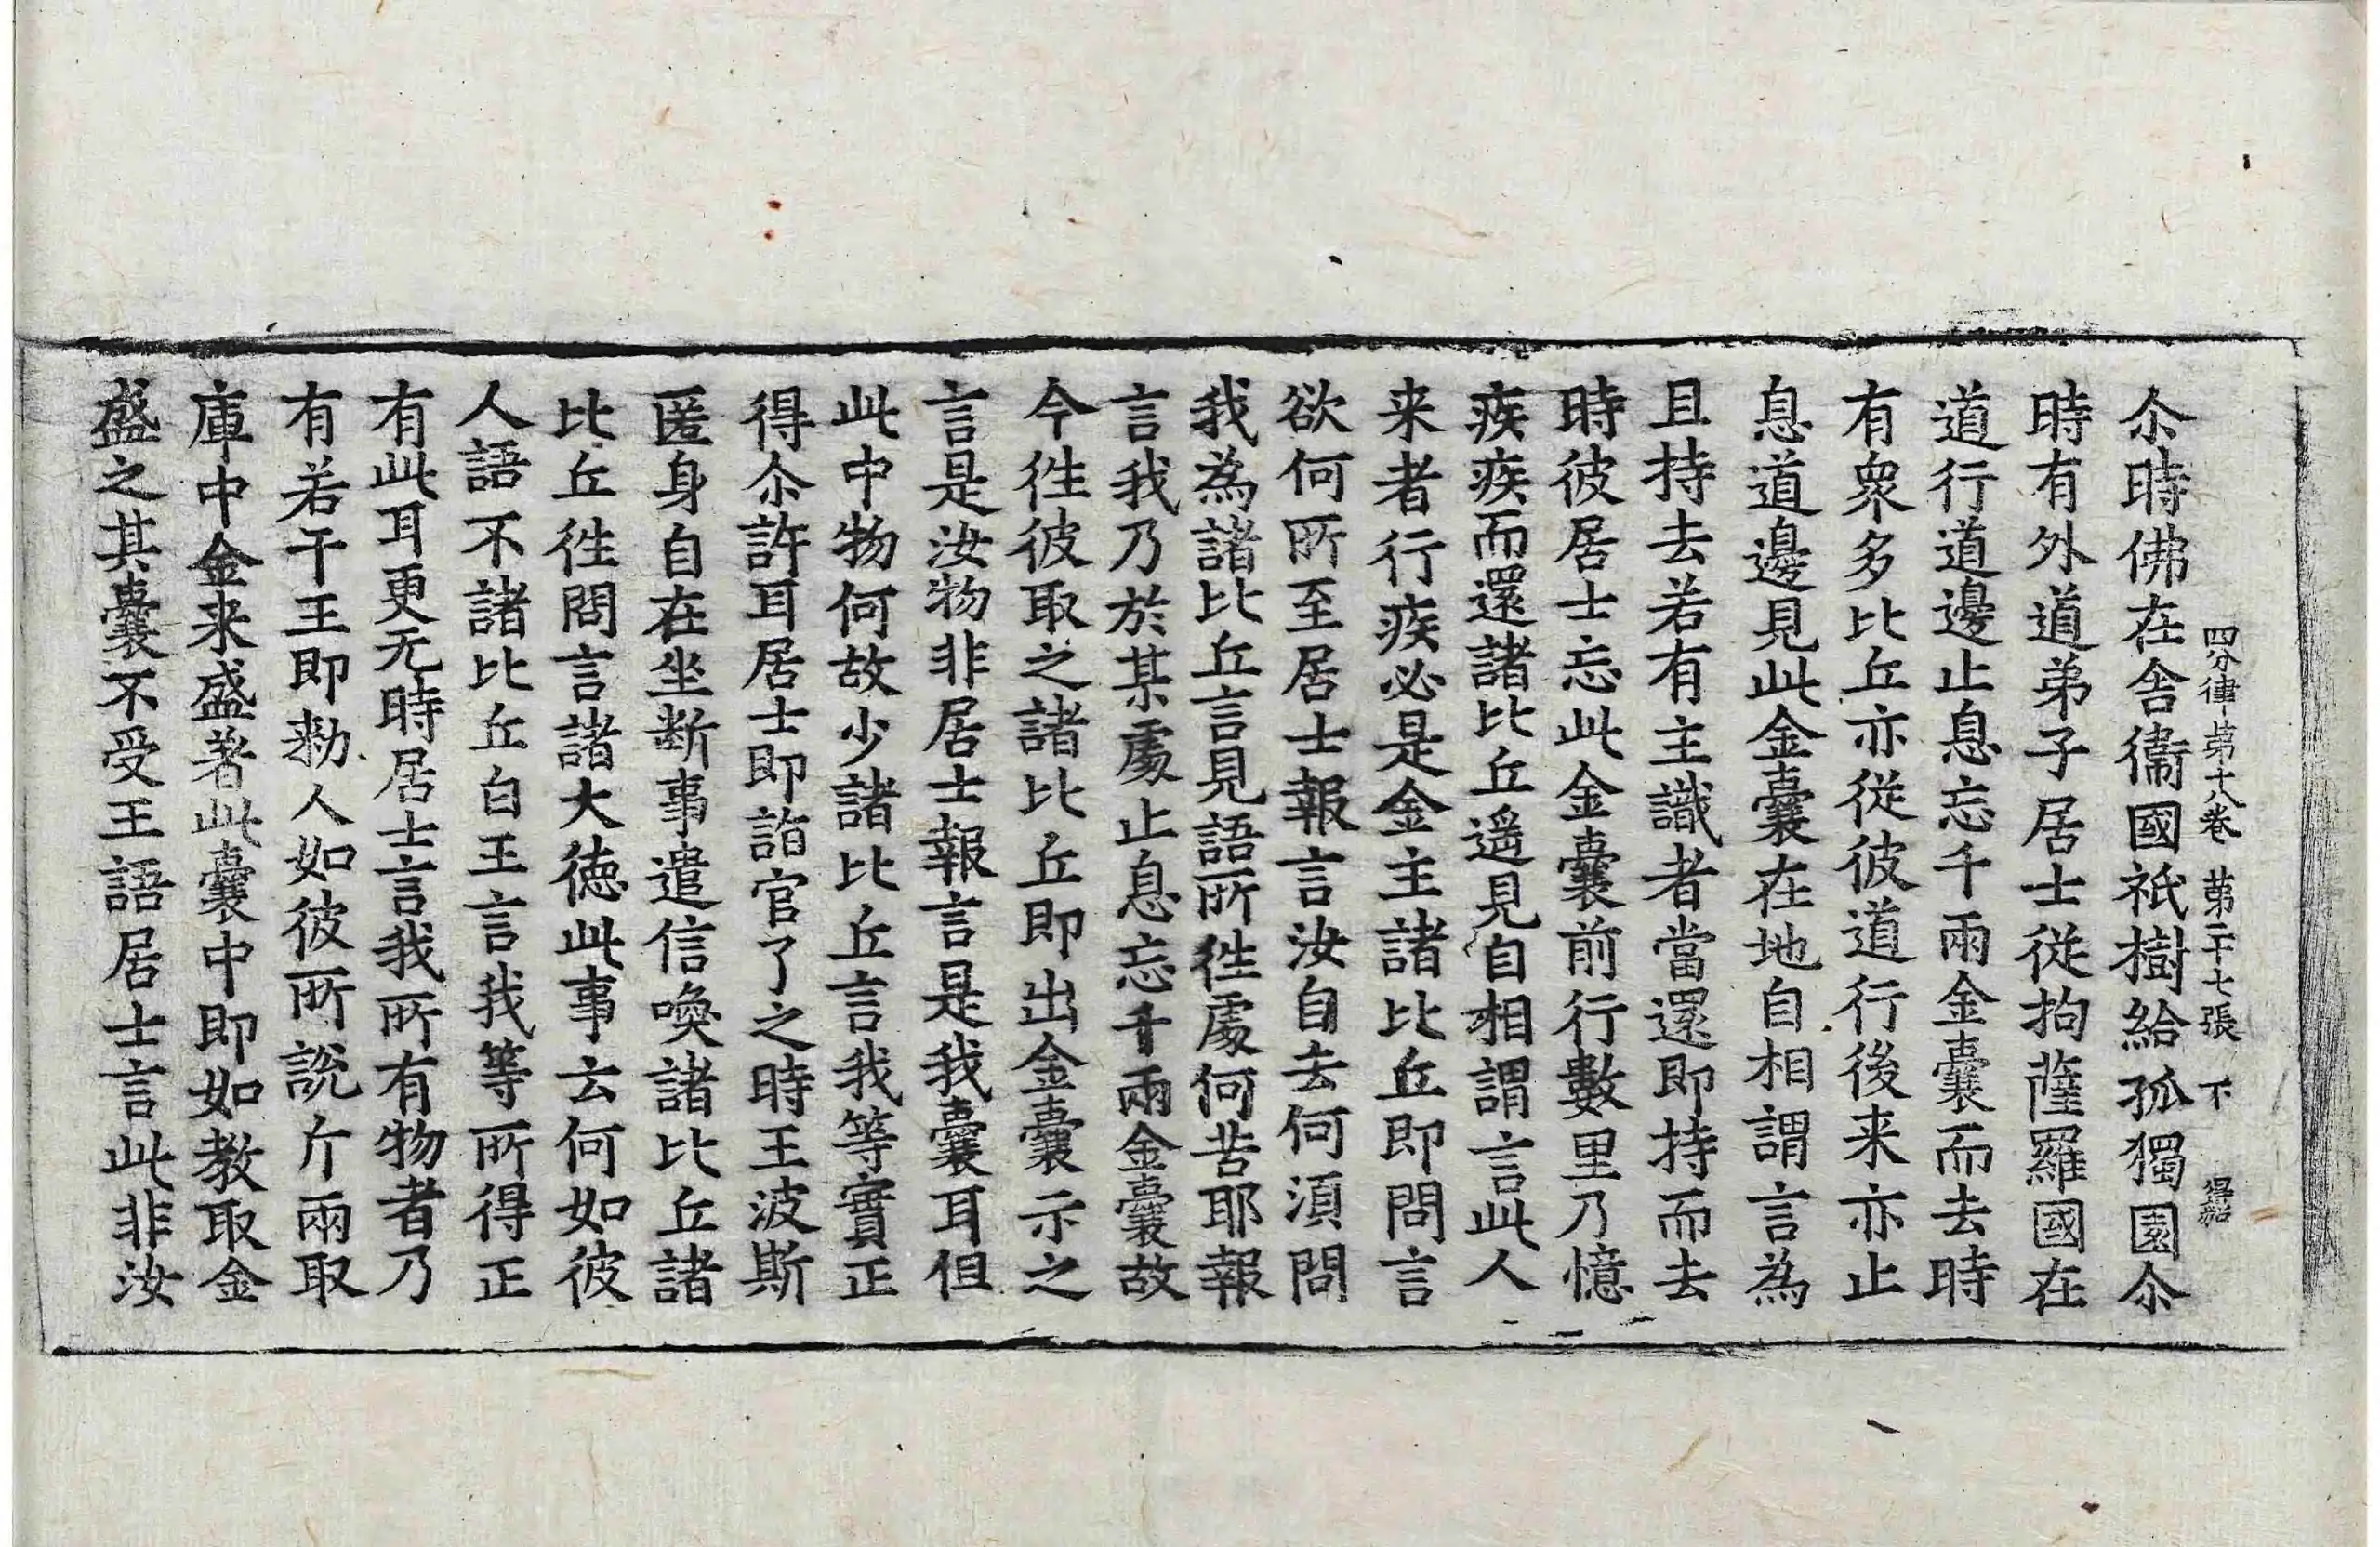 四分律第十八卷 第二十七張 下
尒時佛在舍衞國祇樹給孤獨園尒
時有外道弟子居士從拘薩羅國在
道行道邊止息忘千兩金囊而去時
有衆多比丘亦從彼道行後来亦止
息道邊見此金囊在地自相謂言為
且持去若有主識者當還即持而去
時彼居士忘此金囊前行數里乃憶
疾疾而還諸比丘遥見自相謂言此人
来者行疾必是金主諸比丘即問言
欲何所至居士報言汝自去何湏問
我為諸比丘言見語所徃處何苦耶報
言我乃於某處止息忘千兩金囊故
今徃彼取之諸比丘即出金囊示之
言是汝物非居士報言是我囊耳但
此中物何故少諸比丘言我等實正
得尒許耳居士即詣官了之時王波斯
匿身自在坐断事遣信喚諸比丘諸
比丘徃問言諸大徳此事云何如彼
人語不諸比丘白王言我等所得正
有此耳更无時居士言我所有物者乃
有若干王即勑人如彼所說斤兩取
庫中金来盛著此囊中即如教取金
盛之其囊不受王語居士言此非汝